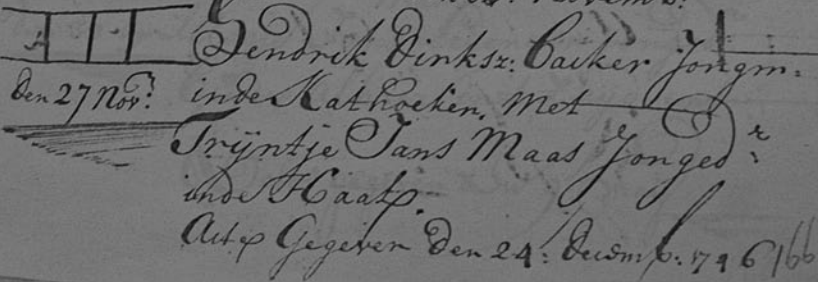 Hendrik Dirksz: Backer Jongm:
den 27 Nov:r inde Kathoeken, Met
Trijntje Jans Maas Jonged:r
inde Haal
Act Gegeven den 24: decemb: 1746